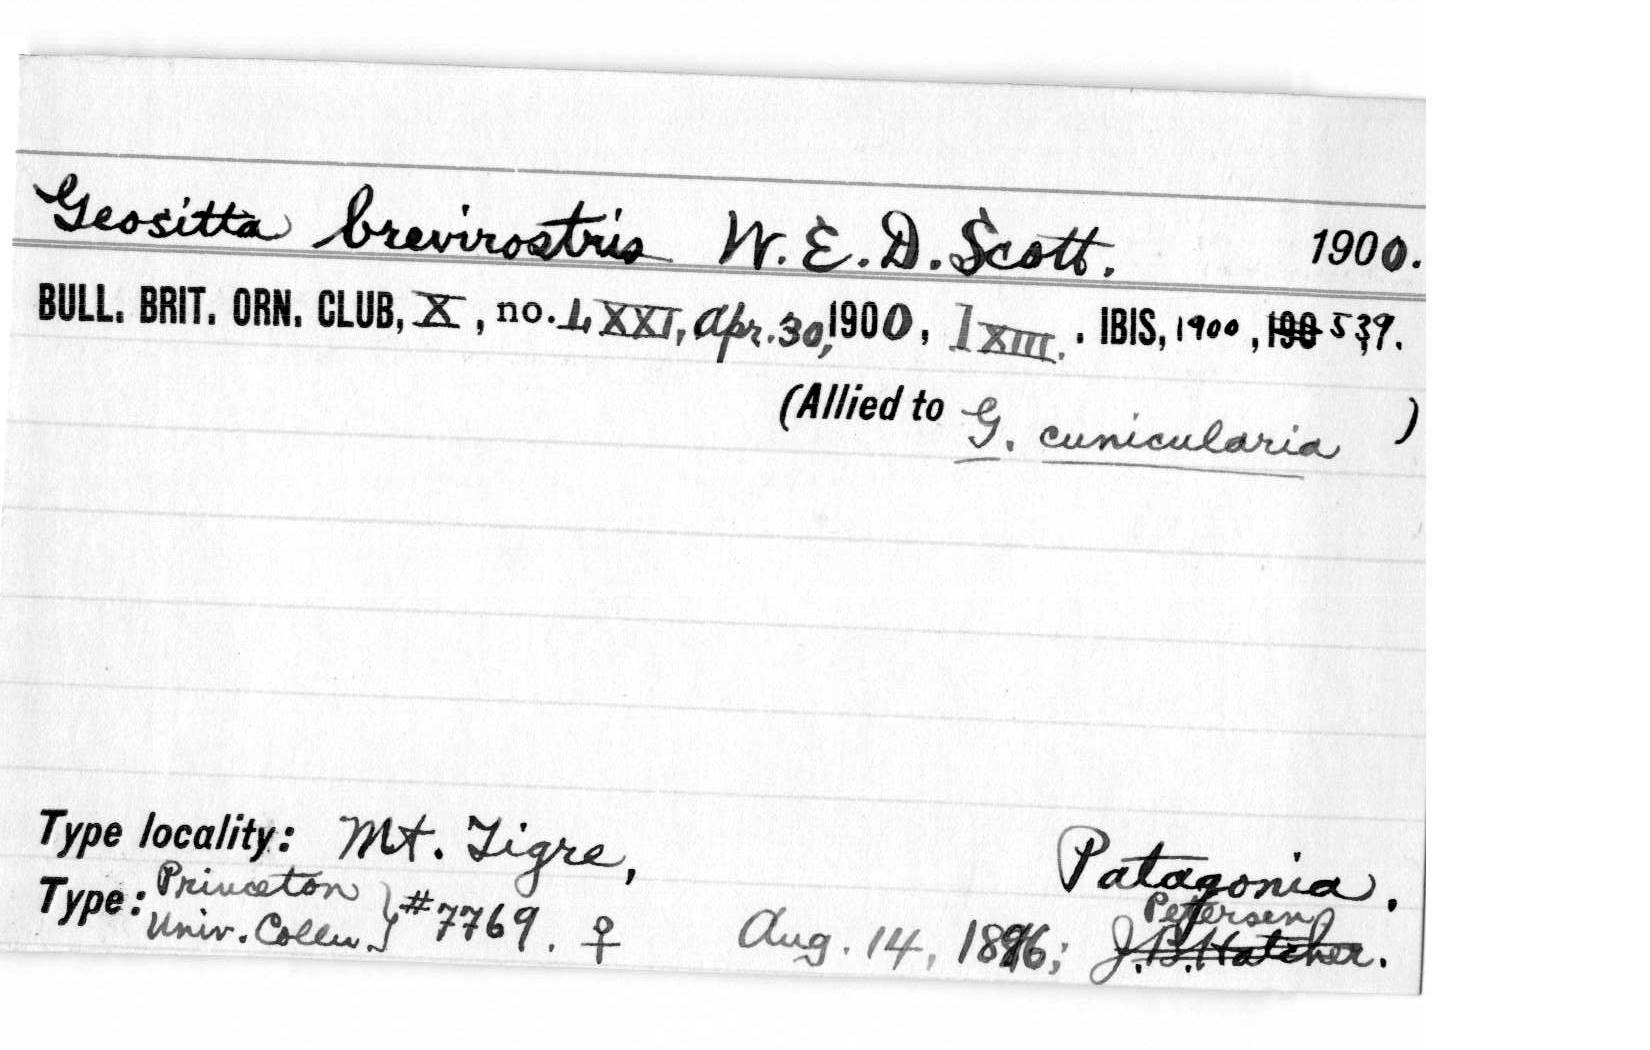 Geositta brevirostris W. E. D. Scott. 1900.
BULL. BRIT. ORN. CLUB, X, no. LXXI, Apr. 30, 1900, lxiii. IBIS, 1900, 190 539.
(Allied to G. cunicularia )
Type locality: Mt. Tigre, Patagonia.
Type: Princeton Univ. Colln. } #7769. ♀ Aug. 14, 1896; Petersen J. B. Hatcher.